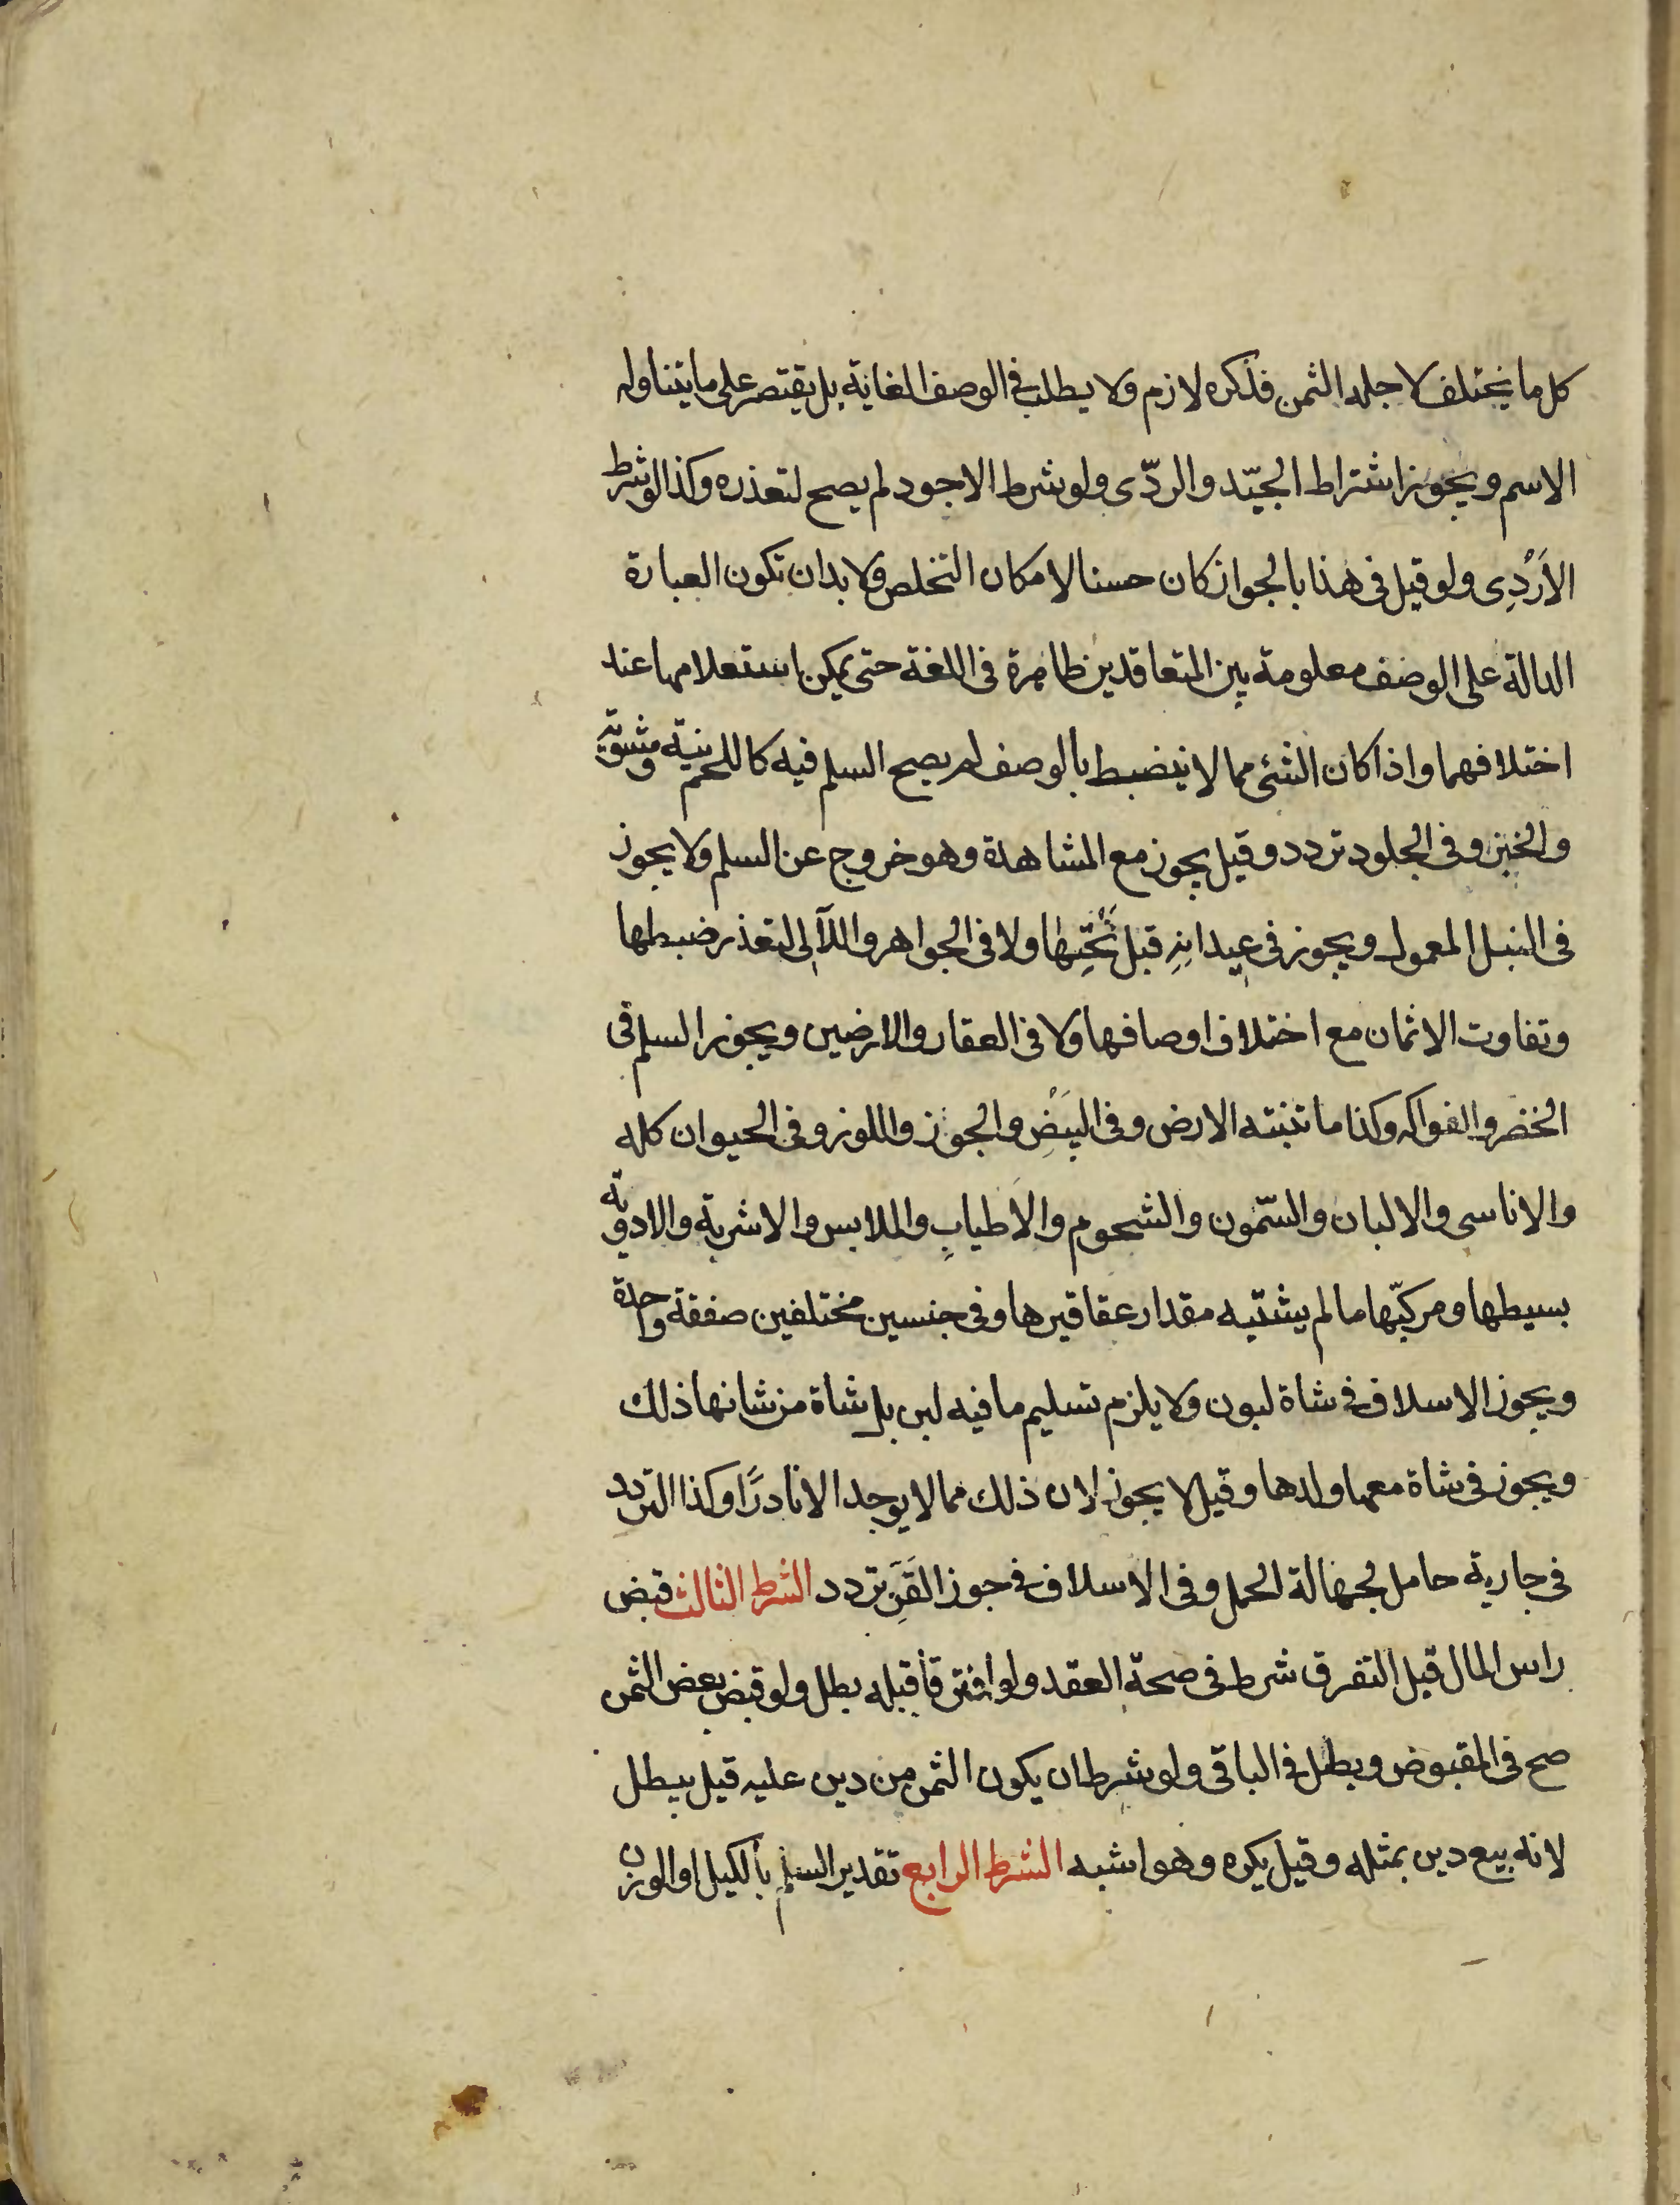 كل ما يختلف لاجله الثمن فذكره لازم ولا يطلب فى الوصف الغاية بل يقتصر على ما يتناوله
الاسم ويجوز اشتراط الجيّد والردّى ولو شرط الاجود لم يصح لتعذره وكذا لو شرط
الاَرْدِى ولو قيل فى هذا بالجواز كان حسنا لامكان التخلص ولا بد ان تكون العبارة
الدالة على الوصف معلومة بين المتعاقدين ظاهرة فى اللغة حتى يمكن استعلامها عند
اختلافهما واذا كان الشئ مما لا ينضبط بالوصف لم يصح السلم فيه كاللحم نيّه ومشويّه
والخبز وفى الجلود تردد وقيل يجوز مع المشاهدة وهو خروج عن السلم ولا يجوز
فى النبل المعمول ويجوز فى عيدانِهِ قبل نَحْتِها ولا فى الجواهر واللآلى لتعذر ضبطها
وتفاوت الاثمان مع اختلاف اوصافها ولا فى العقار والارضين ويجوز السلم فى
الخضر والفواكه وكذا ما تنبته الارض وفى البَيْضِ والجوز واللوز وفى الحيوان كله
والاناسى والالبان والسّمون والشحوم والاَطيابِ والملابس والاشربة والادوية
بسيطها ومركبّها ما لم يشتبه مقدار عقاقيرها وفى جنسين مختلفين صفقة واحدة
ويجوز الاسلاف فى شاة لبون ولا يلزم تسليم ما فيه لبن بل شاة من شانها ذلك
ويجوز فى شاة معها ولدها وقيل لا يجوز لان ذلك مما لا يوجد الا نادرًا وكذا التردد
فى جارية حامل لجهالة الحمل وفى الاسلاف فى جوز القَزِّ تردد الشرط الثالث قبض
راس المال قبل التفرق شرط فى صحة العقد ولو افترقا قبله بطل ولو قبض بعض الثمن
صح فى المقبوض وبطل فى الباقى ولو شرط ان يكون الثمن من دين عليه قيل يبطل
لانه بيع دين بمثله وقيل يكره وهو اشبه الشرط الرابع تقدير السلم بالكيل او الوزن